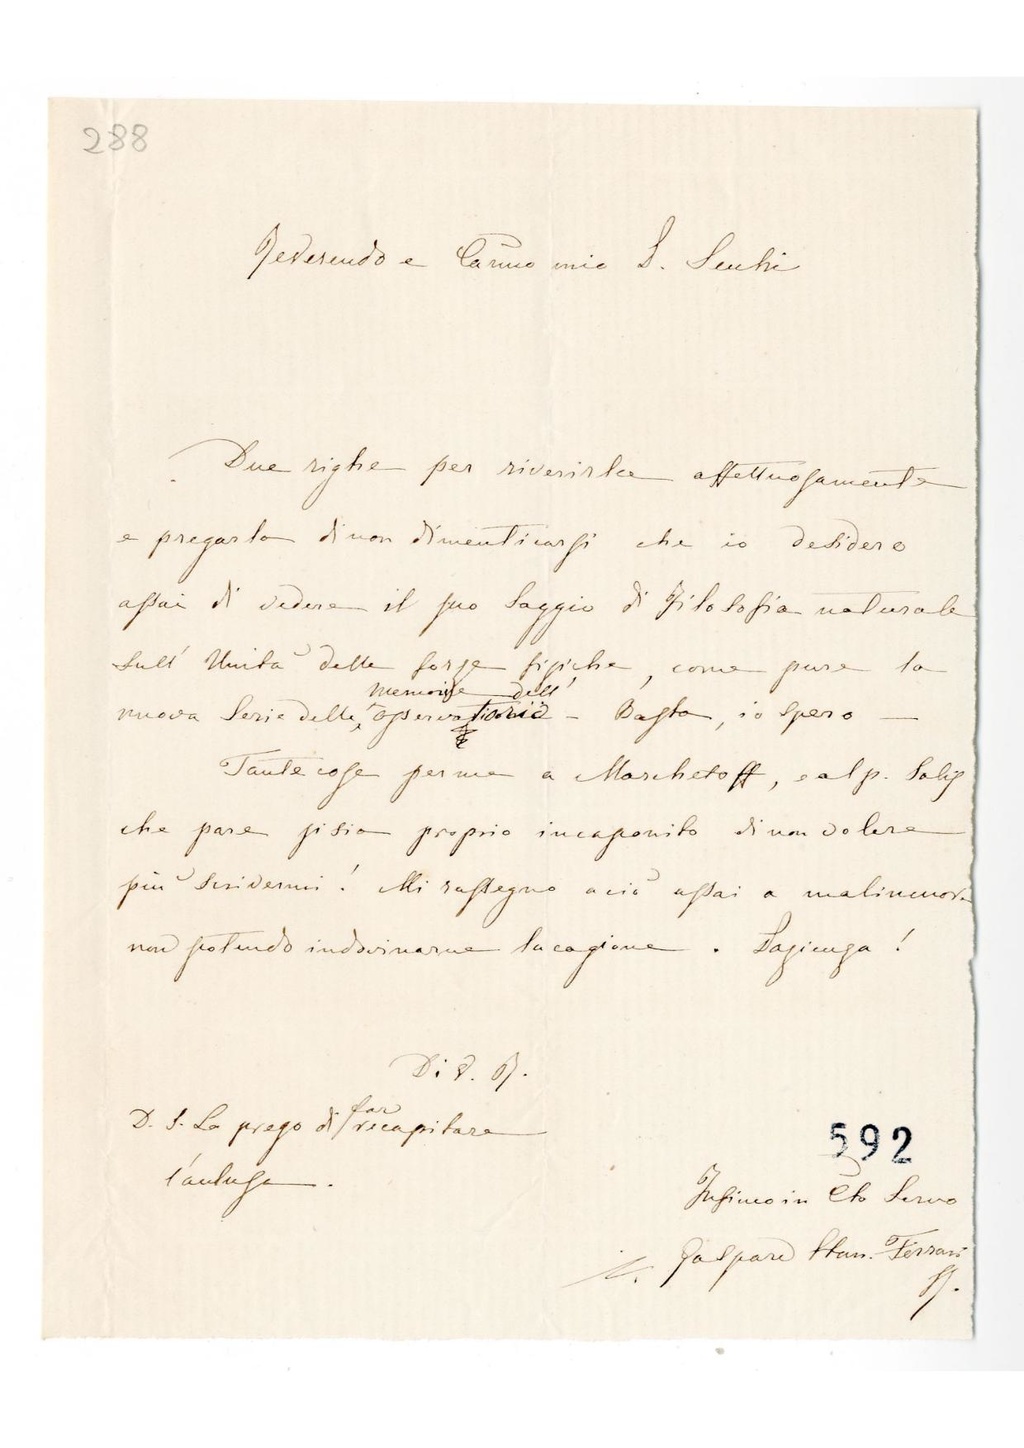 288
Reverendo e Carmo mio P. Secchi
Due righe per riverirla affettuosamente
e pregarla di non dimenticarsi che io desidero
assai di vedere il suo Saggio di Filosofia naturale
sull' Unità delle forze fisiche, come pure la
memorie dell'
nuova Serie delle osservatorio – Basta, io spero —
Tante cose per me a Marchetoff, e al p.
che pare si sia proprio incaponito di non volere
più scrivermi! Mi rassegno a ciò assai a malincuore
non potendo indovinarne la cagione. Pazienza!
Di V. R.
far
P. S. La prego di recapitare
l'anlusa.
592
Infimo in Cto Servo
Gaspare Stan. Ferrari
SJ.